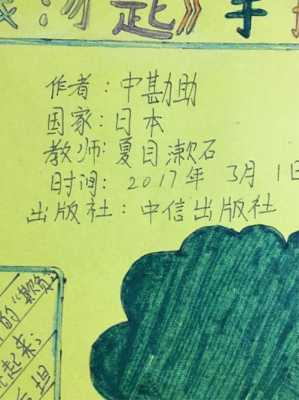 匙》手
作者：中勘助
国家：日本
教师：夏目漱石
时间：2017年 3月 1日
出版社：中信出版社
的“欺负
起来；
担